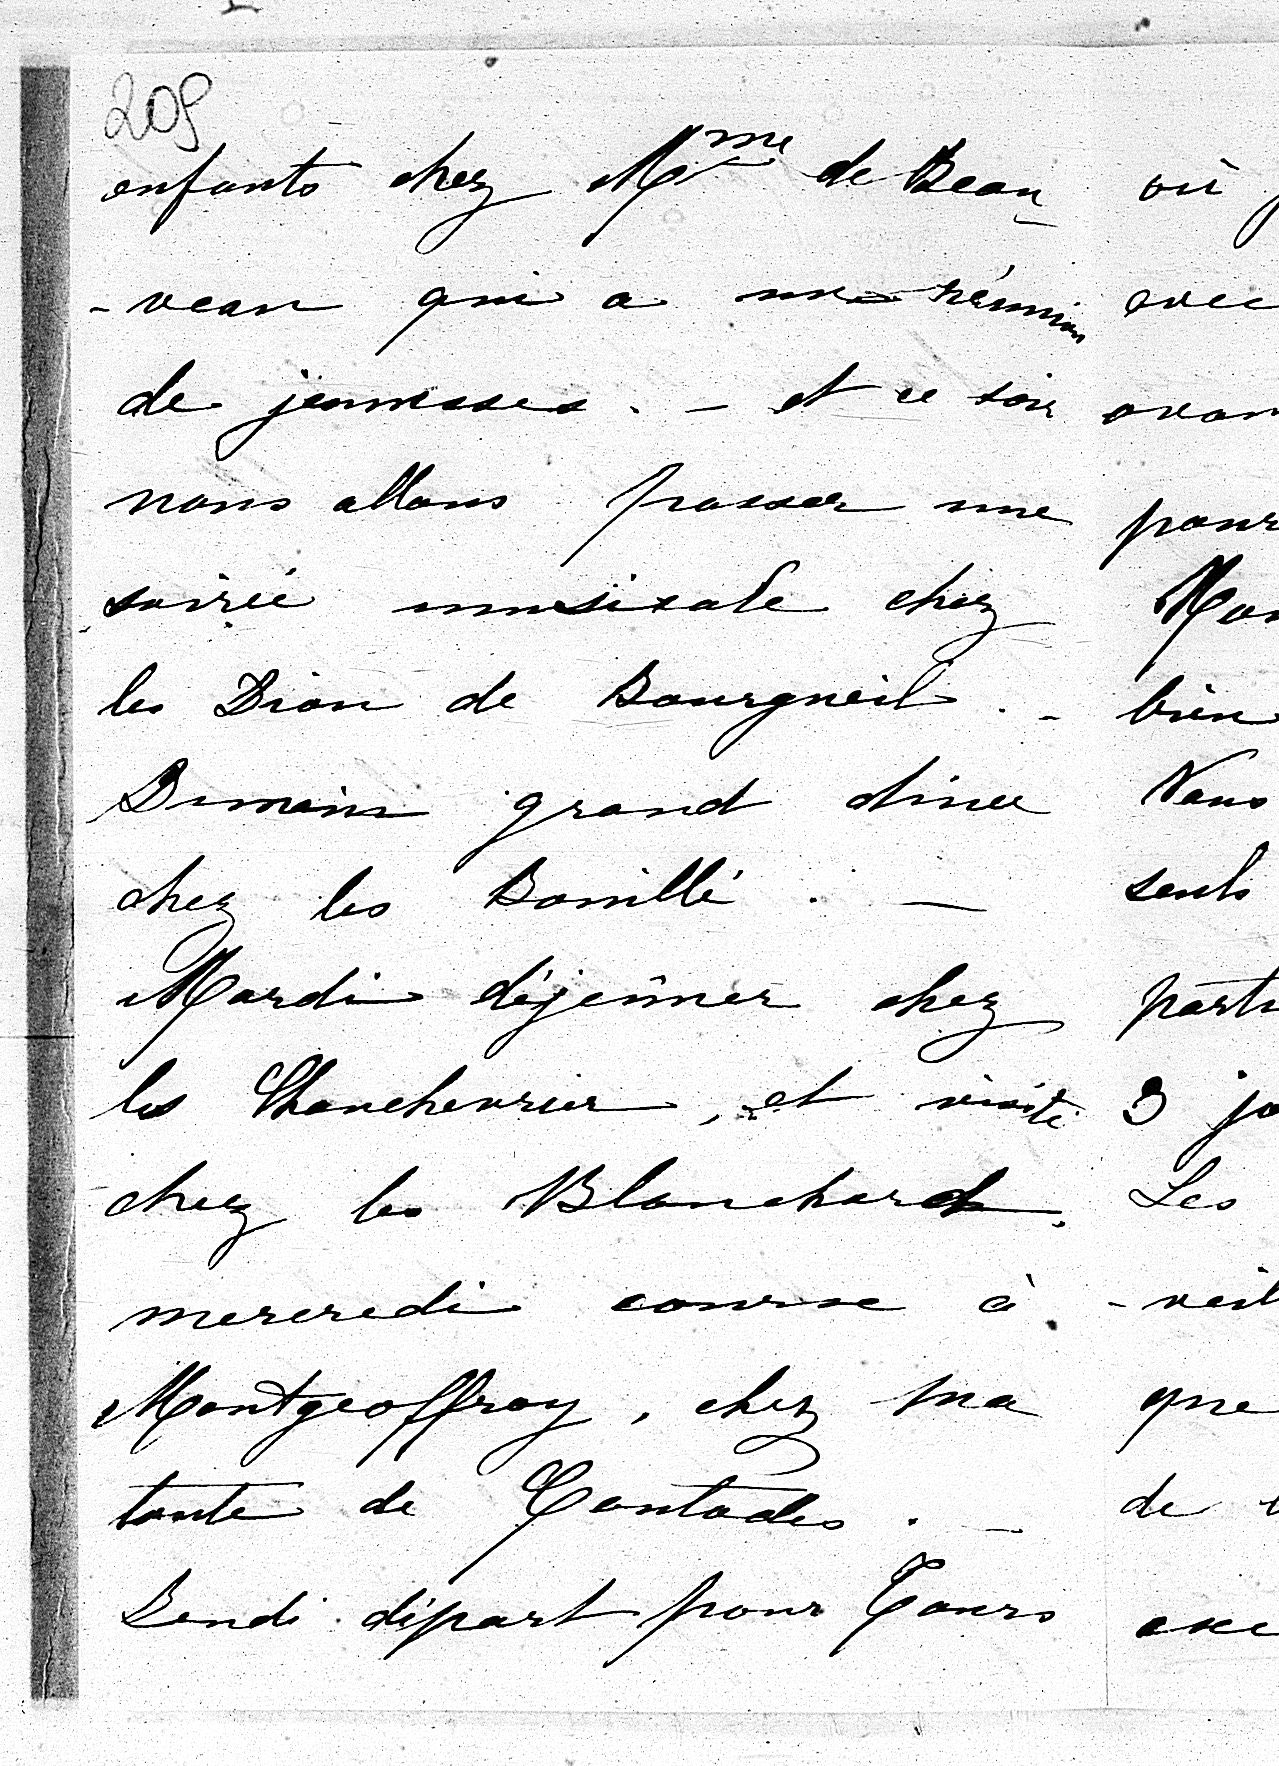 209
enfants chez Mme de Beau
-veau qui a une réunion
de jeunesses. - et ce soir
nous allons passer une
soirée musicale chez
les Dion de Bourgneil. -
Demain grand diner
chez les Bouillé. -
Mardi déjeûner chez
les Chanchevrier, et visite
chez les Blanchard,
mercredi course à
Montgeoffroy, chez ma
tante de Contades. -
Lundi départ pour Tours
où
avec
avan
pour
Mon
bien
Nous
seuls
parti
3 jo
Les
-veil
que
de